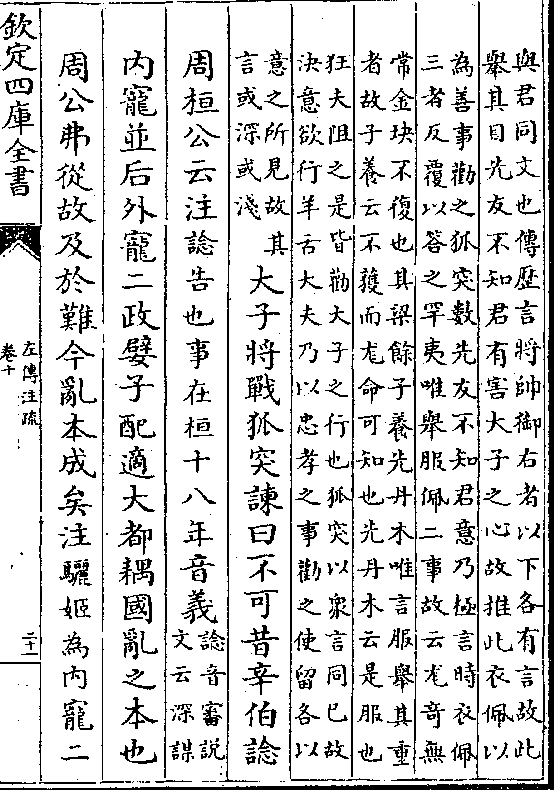 與君同文也傳歷言將帥御右者以下各有言故此
舉其目先友不知君有害大子之心故推此衣佩以
為善事勸之狐突數先友不知君意乃極言時衣佩
三者反覆以答之罕夷唯舉服佩二事故云尨奇無
常金玦不復也其梁餘子養先丹木唯言服舉其重
者故子養云不獲而尨命可知也先丹木云是服也
狂夫阻之是皆勸大子之行也狐突以衆言同已故
決意欲行羊舌大夫乃以忠孝之事勸之使留各以
意之所見故其
言或深或淺
大子將戰狐突諫曰不可昔辛伯諗
周桓公云注諗告也事在桓十八年音義
諗音審說
文云深謀
内寵並后外寵二政嬖子配適大都耦國亂之本也
周公弗從故及於難今亂本成矣注驪姬為内寵二
欽定四庫全書
左傳注疏
卷十
二十